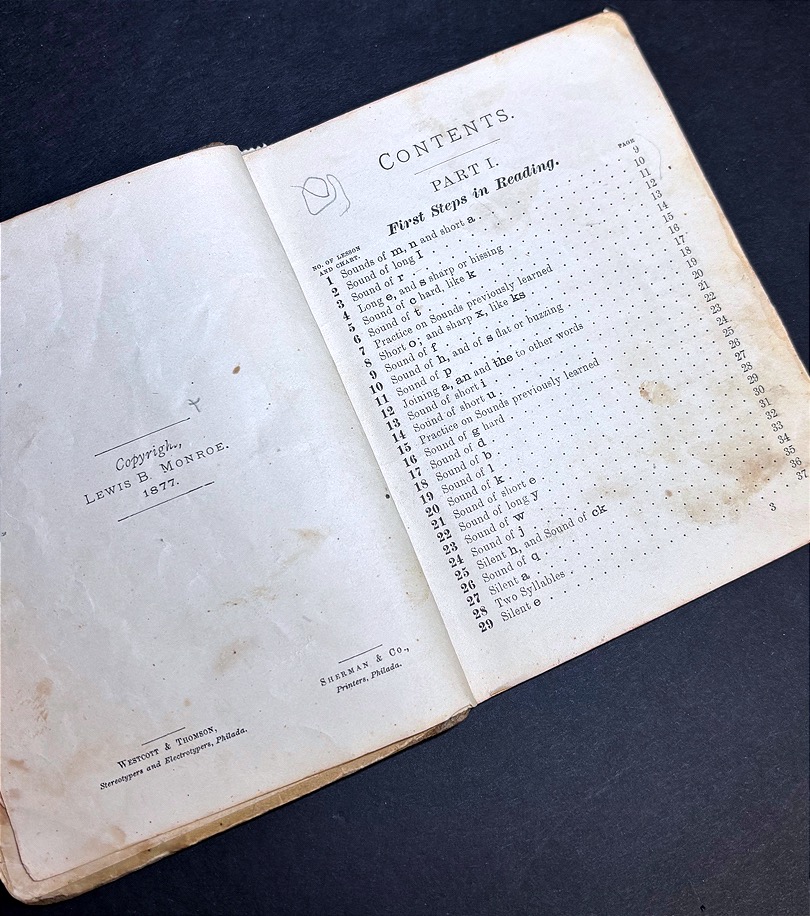 Copyright,
LEWIS B. MONROE.
1877.
SHERMAN & CO.,
Printers, Philada.
WESTCOTT & THOMSON,
Stereotypers and Electrotypers, Philada.
CONTENTS.
PART I.
First Steps in Reading.
NO. OF LESSON
AND CHART. PAGE
1 Sounds of m, n and short a 9
2 Sound of long I 10
3 Sound of r 11
4 Long e, and s sharp or hissing 12
5 Sound of c hard, like k 13
6 Sound of t 14
7 Practice on Sounds previously learned 15
8 Short o; and sharp x, like ks 16
9 Sound of f 17
10 Sound of h, and of s flat or buzzing 18
11 Sound of p 19
12 Joining a, an and the to other words 20
13 Sound of short i 21
14 Sound of short u 22
15 Practice on Sounds previously learned 23
16 Sound of g hard 24
17 Sound of d 25
18 Sound of b 26
19 Sound of l 27
20 Sound of k 28
21 Sound of short e 29
22 Sound of long y 30
23 Sound of w 31
24 Sound of j 32
25 Silent h, and Sound of ck 33
26 Sound of q 34
27 Silent a 35
28 Two Syllables 36
29 Silent e 37
3